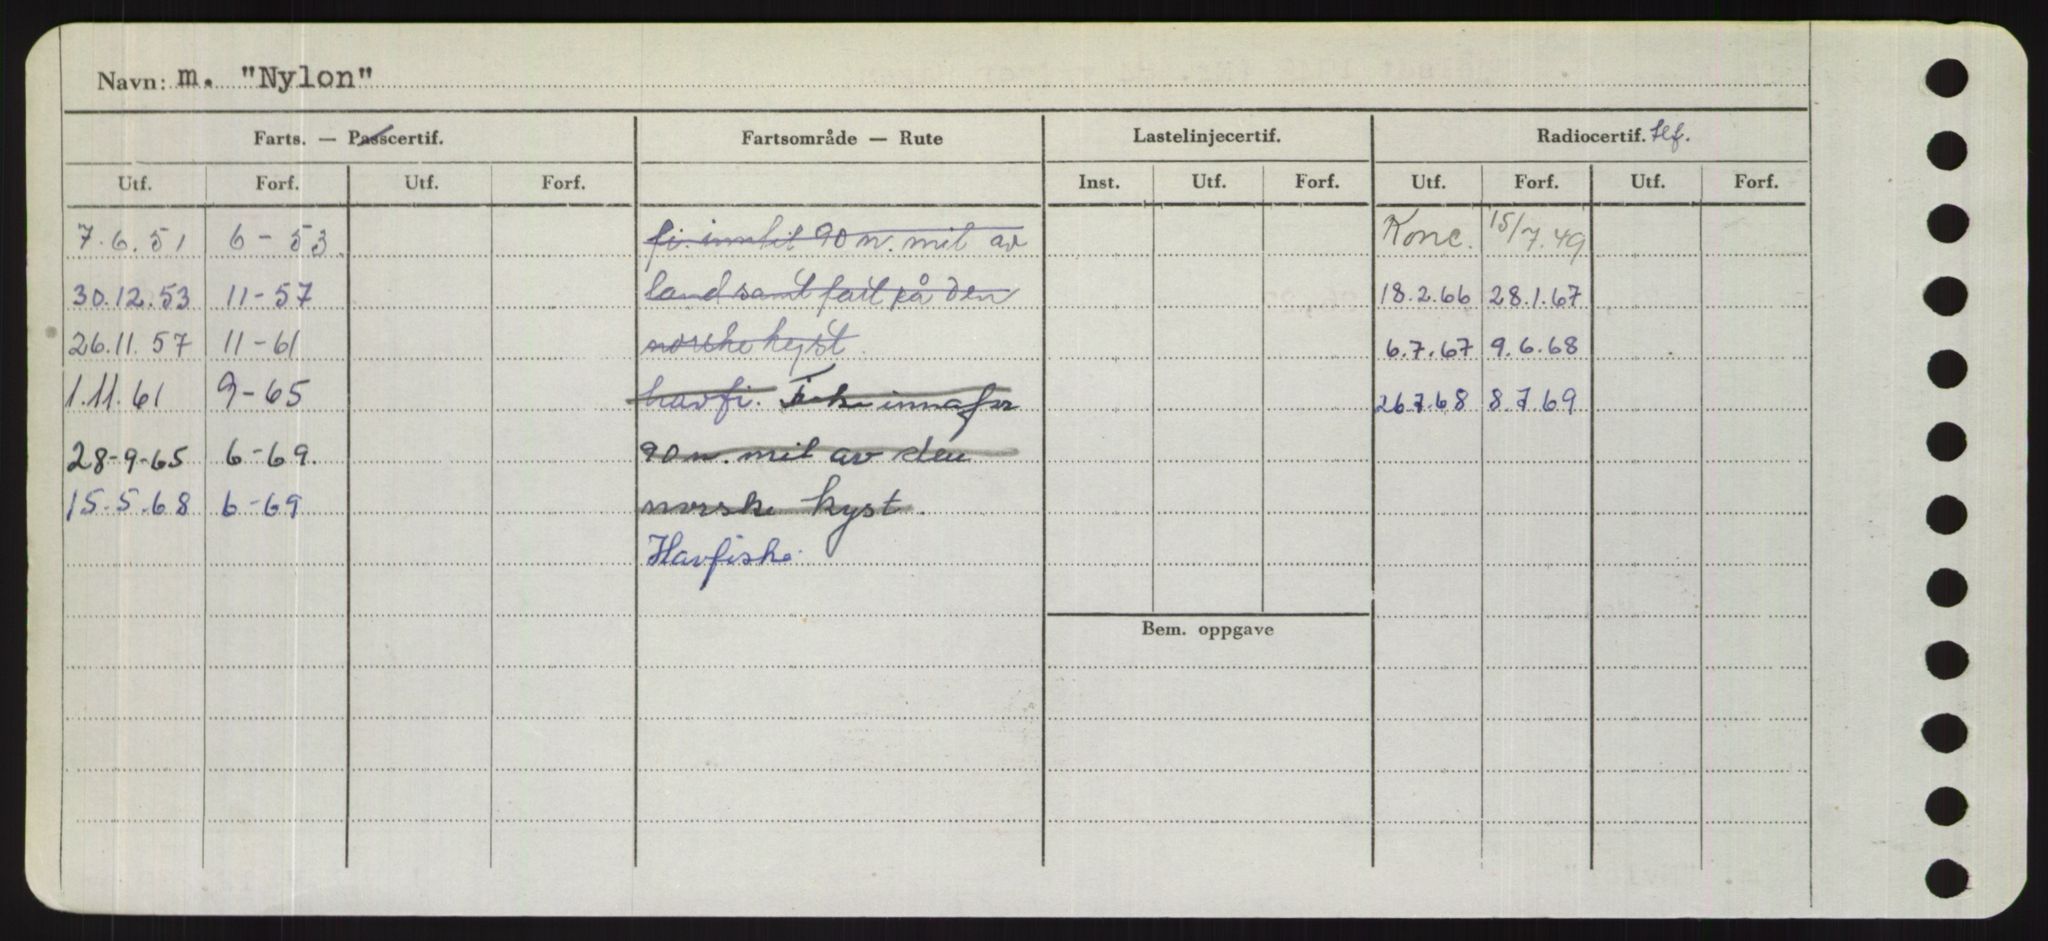 Navn: m. "Nylon"
Farts. — Passcertif. Fartsområde — Rute Lastelinjecertif. Radiocertif. tlf.
Utf. Forf. Utf. Forf. Inst. Utf. Forf. Utf. Forf. Utf. Forf.
7.6.51 6-53. fi. inntil 90 n. mil av Konc. 15/7.49
30.12.53 11-57 land samt fart på den 18.2.66 28.1.67
26.11.57 11-61 norske kyst. 6.7.67 9.6.68
1.11.61 9-65 havfi. Fiske innafor 26.7.68 8.7.69
28-9-65 6-69. 90 n. mil av den
15.5.68 6-69 norske kyst.
Havfiske.
Bem. oppgave